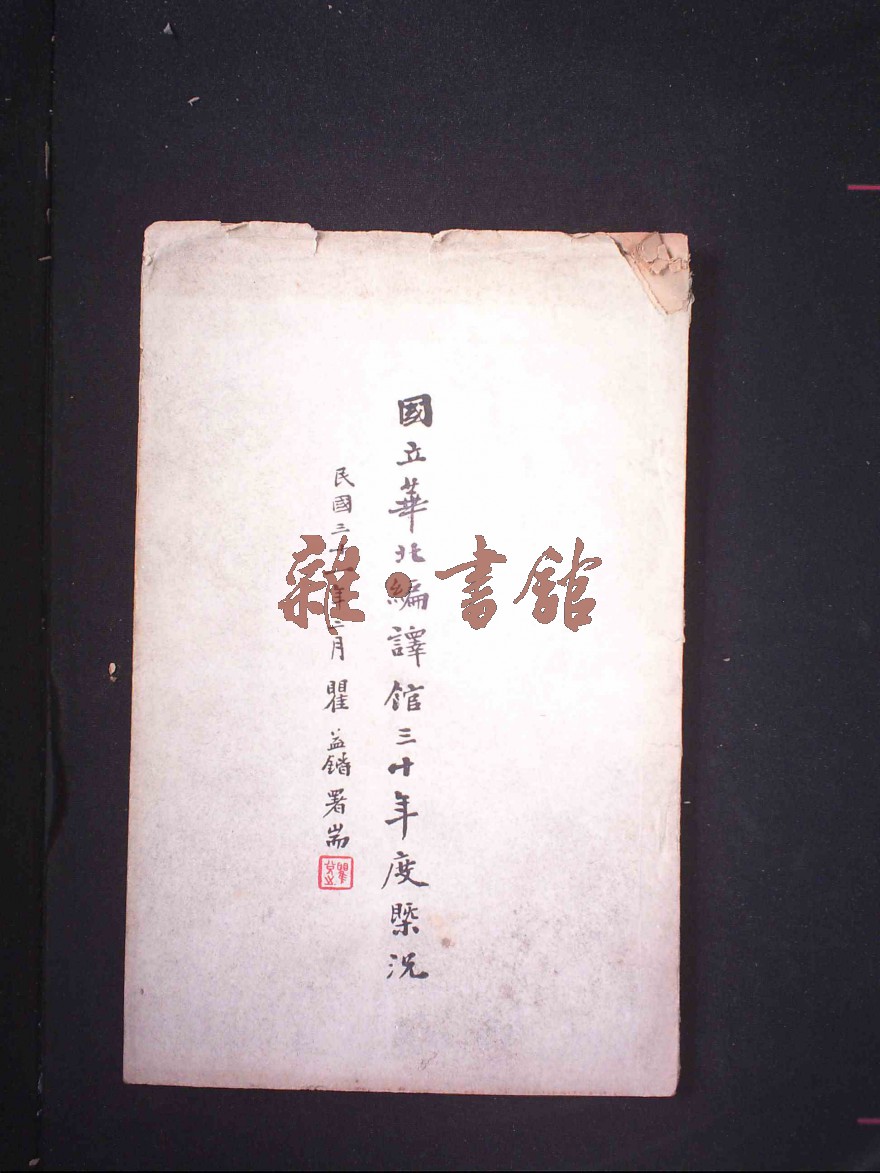 國立華北編譯館三十年度槩況
民國三十一年二月 瞿益鍇署耑
雜·書館